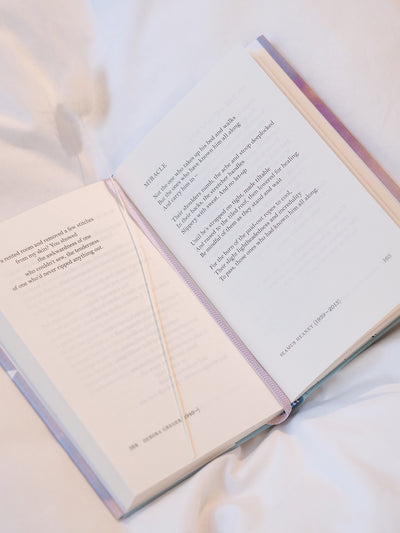 a rented room and removed a few stitches
from my skin? You showed
the awkwardness of one
who couldn't sew, the tenderness
of one who'd never ripped anything out.
MIRACLE
Not the one who takes up his bed and walks
But the ones who have known him all along
And carry him in –
Their shoulders numb, the ache and stoop deeplocked
In their backs, the stretcher handles
Slippery with sweat. And no let-up
Until he's strapped on tight, made tiltable
And raised to the tiled roof, then lowered for healing.
Be mindful of them as they stand and wait
For the burn of the paid-out ropes to cool,
Their slight lightheadedness and incredulity
To pass, those ones who had known him all along.
SEAMUS HEANEY (1939–2013)